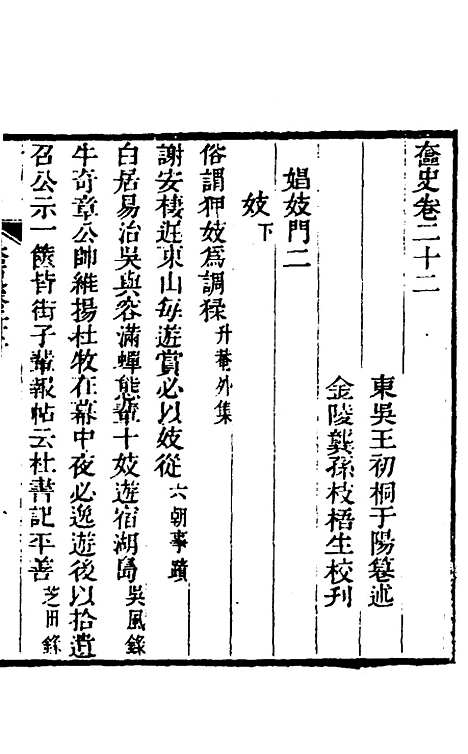 奩史卷二十二
東吳王初桐于陽纂述
金陵龔孫枝梧生校刊
娼妓門二
妓下
俗謂狎妓爲調猱升菴外集
謝安棲遲東山每遊賞必以妓從六朝事蹟
白居易治吳與容滿蟬態輩十妓遊宿湖島吳風錄
牛奇章公帥維揚杜牧在幕中夜必逸遊後以拾遺
召公示一篋皆街子輩報帖云杜書記平善芝田錄